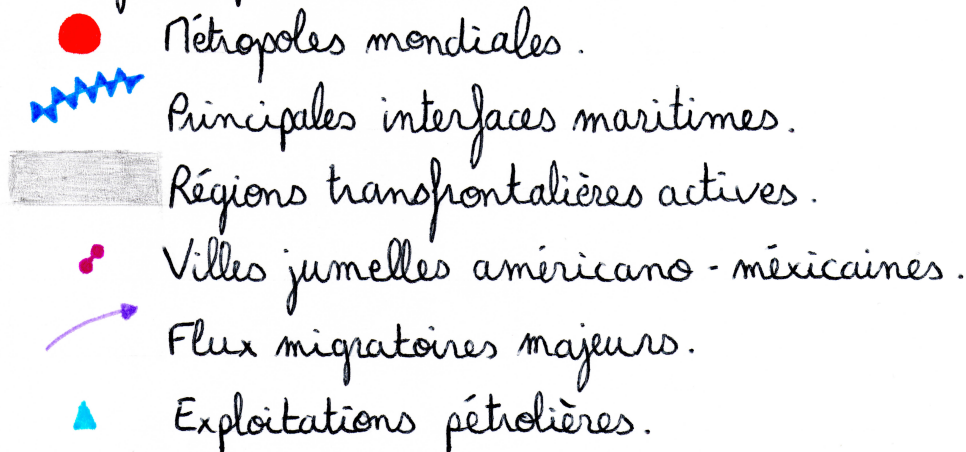 Métropoles mondiales.
Principales interfaces maritimes.
Régions transfrontalières actives.
Villes jumelles américano-méxicaines.
Flux migratoires majeurs.
Exploitations pétrolières.